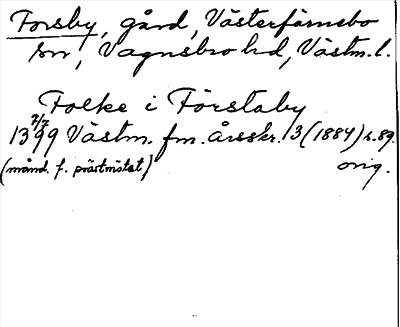 Forsby, gård, Västerfärnebo
sn, Vagnsbro hd, Västm. l.
Folke i Förstaby
2/7
1399 Västm. fm. årsskr. 3 (1884) s. 89.
(månd. f. prästmötet) orig.